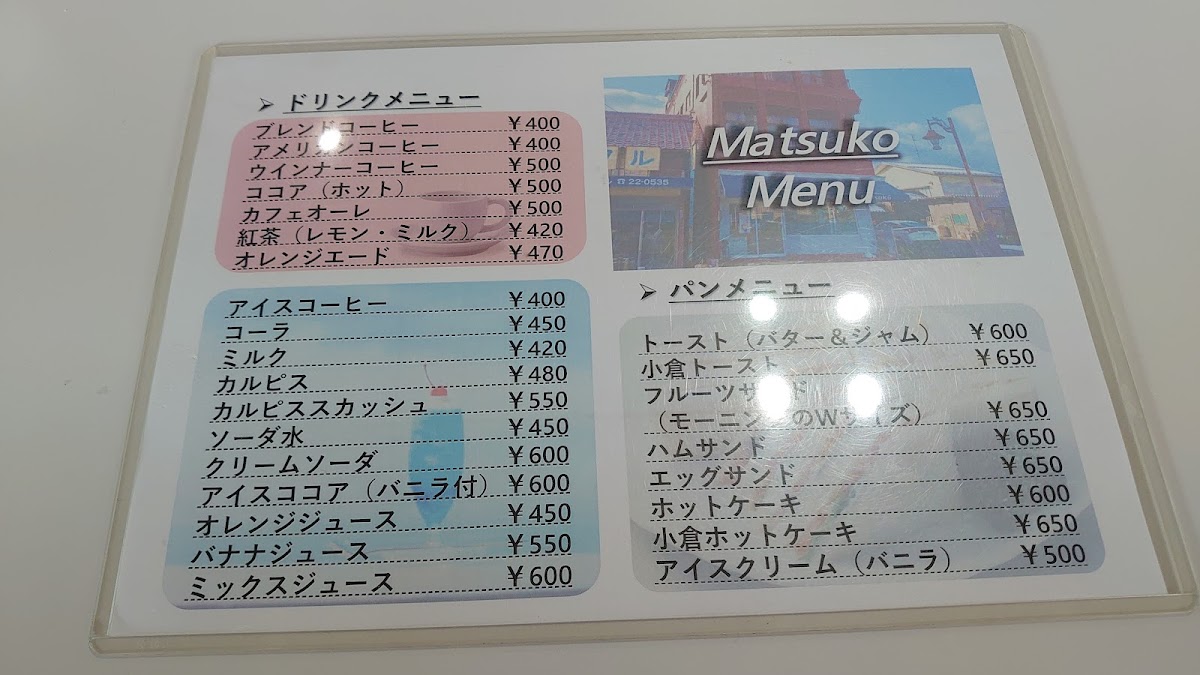 ➢ ドリンクメニュー
ブレンドコーヒー ￥400
アメリカンコーヒー ￥400
ウインナーコーヒー ￥500
ココア（ホット） ￥500
カフェオーレ ￥500
紅茶（レモン・ミルク） ￥420
オレンジエード ￥470
アイスコーヒー ￥400
コーラ ￥450
ミルク ￥420
カルピス ￥480
カルピススカッシュ ￥550
ソーダ水 ￥450
クリームソーダ ￥600
アイスココア（バニラ付） ￥600
オレンジジュース ￥450
バナナジュース ￥550
ミックスジュース ￥600
Matsuko
Menu
ル
☎22-0535
➢ パンメニュー
トースト（バター＆ジャム） ￥600
小倉トースト ￥650
フルーツサンド
（モーニングのWサイズ） ￥650
ハムサンド ￥650
エッグサンド ￥650
ホットケーキ ￥600
小倉ホットケーキ ￥650
アイスクリーム（バニラ） ￥500